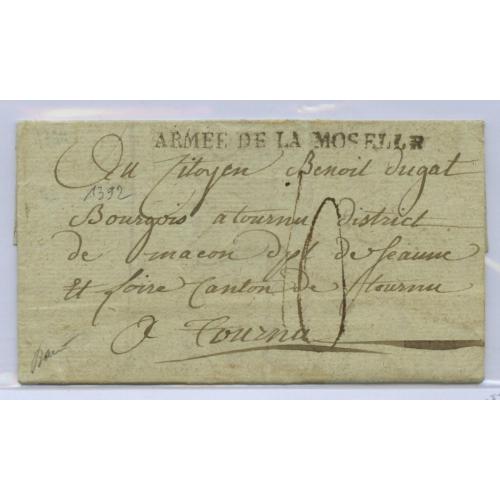 ARMEE DE LA MOSELLE
Au Citoyen Benoit dugat
1392
Bourgois a tournu district
de macon dpt de seaune
et loire Canton de tournu
a tournu